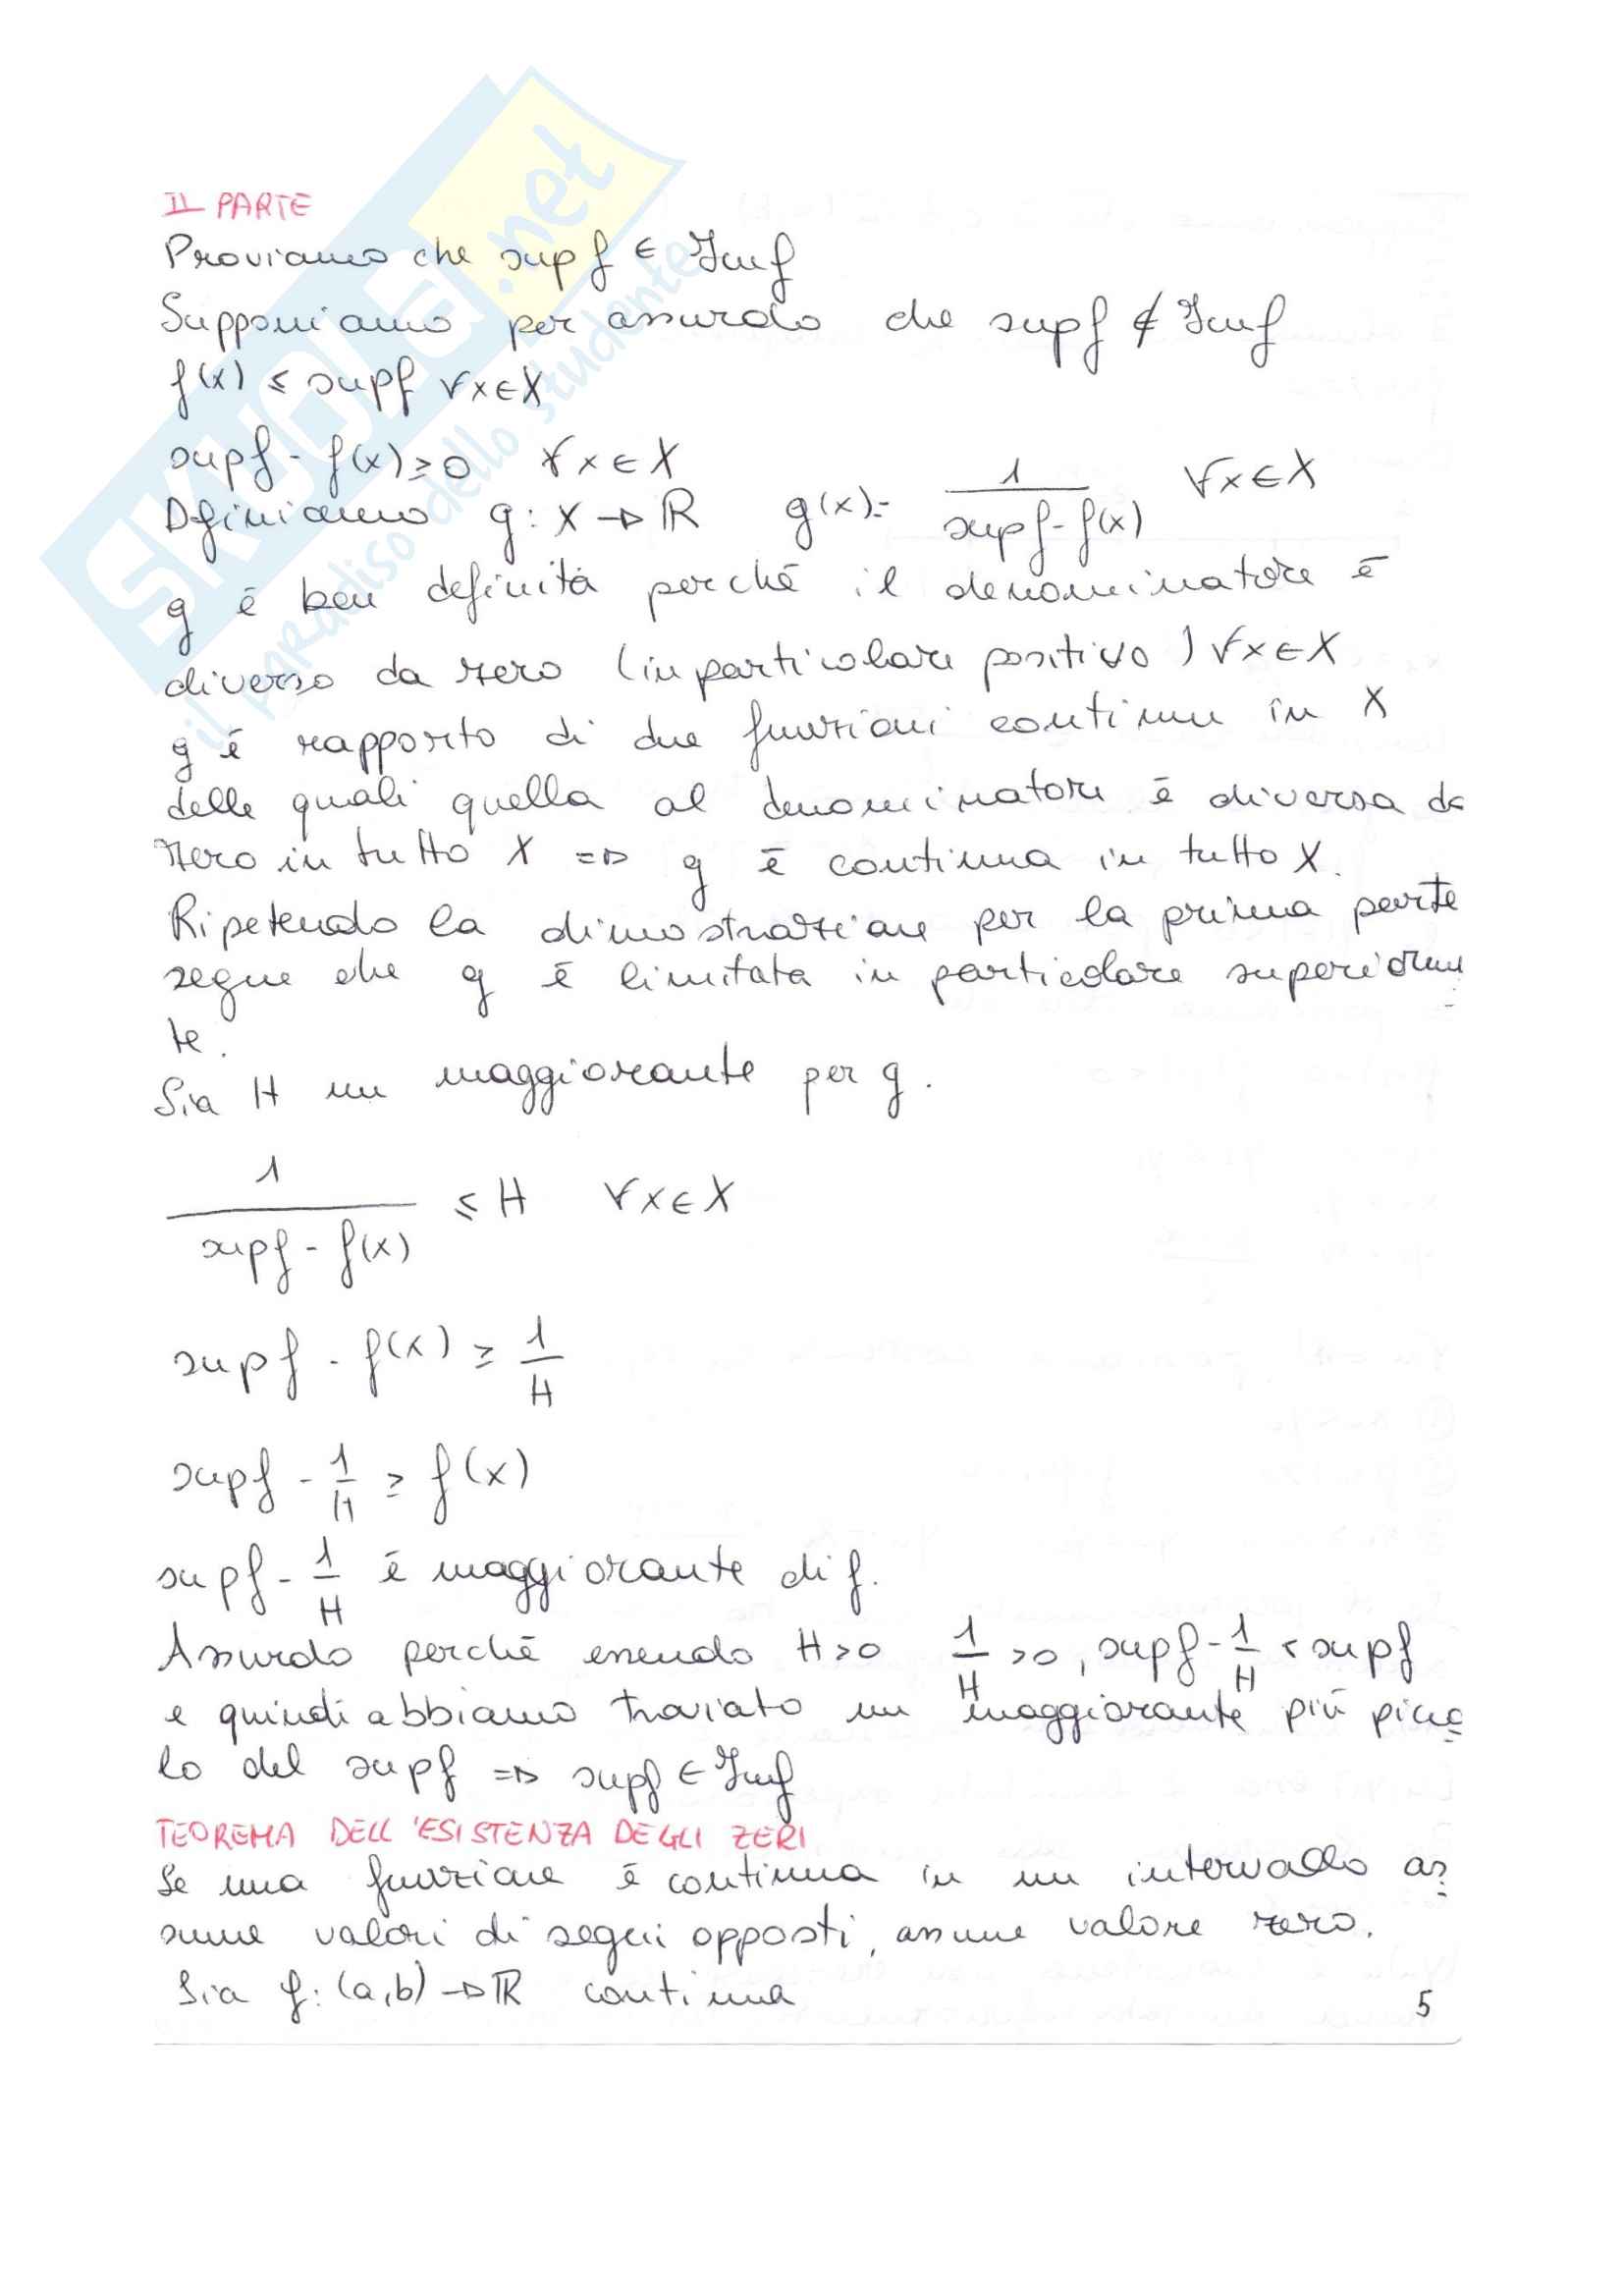 SKUOLA.net
il paradiso dello studente
II PARTE
Proviamo che sup f ∈ Im f
Supponiamo per assurdo che sup f ∉ Im f
f(x) ≤ sup f ∀x∈X
sup f - f(x) ≥ 0 ∀x∈X
Dfiniamo g: X → ℝ g(x) = 1/(sup f - f(x)) ∀x∈X
g é ben definita perché il denominatore é
diverso da zero (in particolare positivo) ∀x∈X
g é rapporto di due funzioni continue in X
delle quali quella al denominatore é diversa da
zero in tutto X ⇒ g é continua in tutto X.
Ripetendo la dimostrazione per la prima parte
segue che g é limitata in particolare superiormen
te.
Sia H un maggiorante per g.
1/(sup f - f(x)) ≤ H ∀x∈X
sup f - f(x) ≥ 1/H
sup f - 1/H ≥ f(x)
sup f - 1/H é maggiorante di f.
Assurdo perché essendo H>0 1/H >0, sup f - 1/H < sup f
e quindi abbiamo trovato un maggiorante piú picco
lo del sup f ⇒ sup f ∈ Im f
TEOREMA DELL'ESISTENZA DEGLI ZERI
Se una funzione é continua in un intervallo as
sume valori di segni opposti, assume valore zero.
Sia f: (a,b) → ℝ continua
5